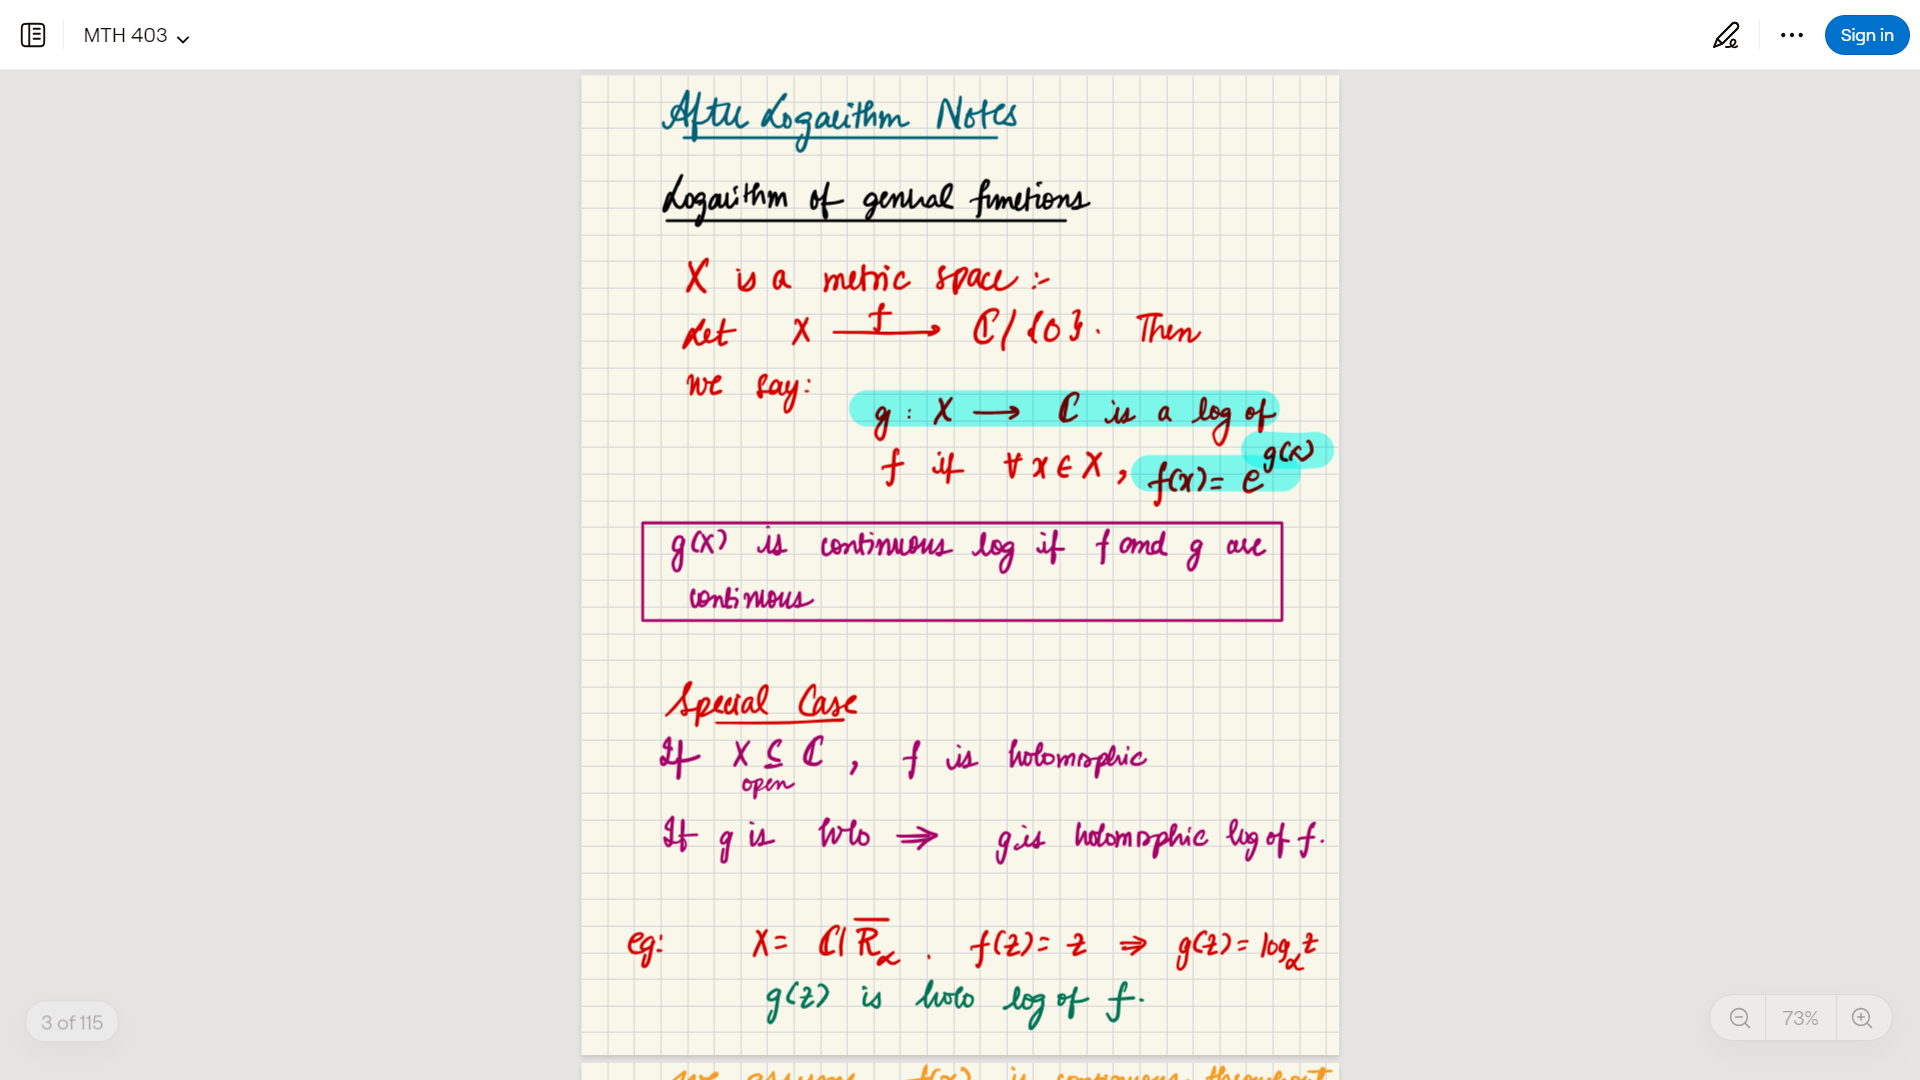 MTH 403
Sign in
After Logarithm Notes
Logarithm of general functions
X is a metric space :-
Let X —f→ ℂ/{0}. Then
we say:
g : X → ℂ is a log of
f if ∀ x ∈ X, f(x) = e^g(x)
g(x) is continuous log if f and g are
continuous
Special Case
If X ⊆ ℂ, f is holomorphic
open
If g is holo ⇒ g is holomorphic log of f.
eg: X = ℂ| R̅_α . f(z) = z ⇒ g(z) = log_α z
g(z) is holo log of f.
3 of 115
73%
we assume f(x) is continuous throughout